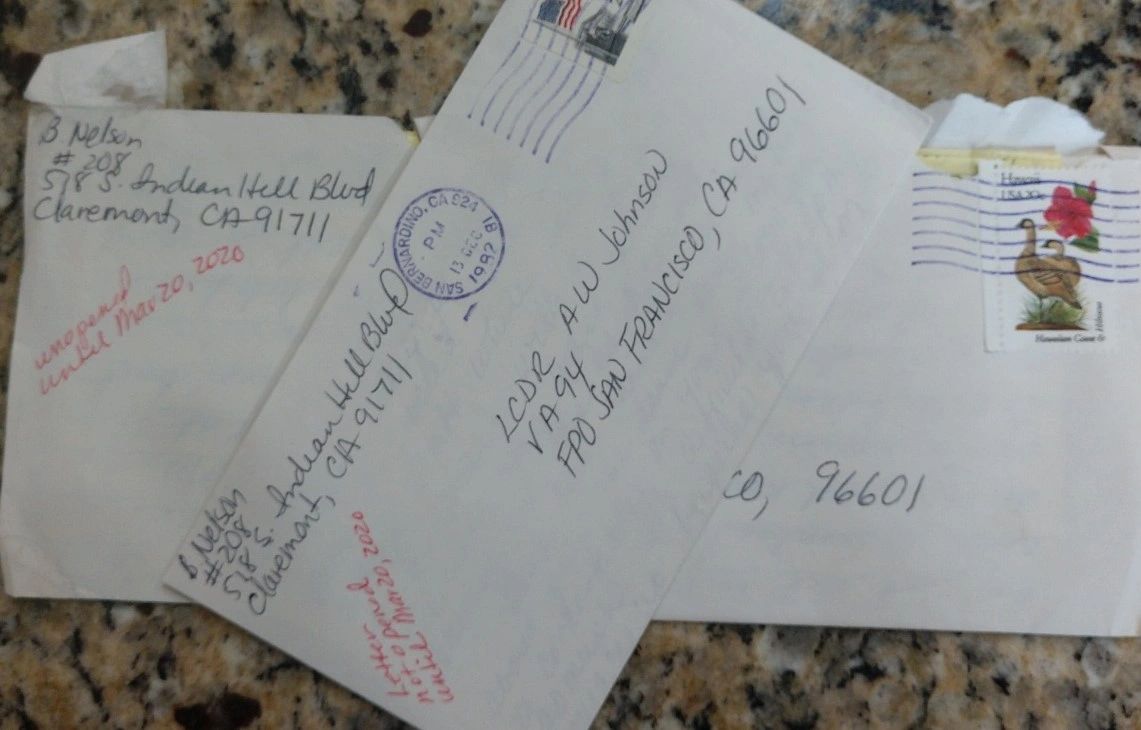 B Nelson
# 208
518 S. Indian Hill Blvd
Claremont, CA 91711
unopened
until Mar 20, 2020
SAN BERNARDINO, CA 924 1B
PM
13 DEC
1982
LCDR AW Johnson
VA 94
FPO SAN FRANCISCO, CA 96601
B Nelson
#208
518 S. Indian Hill Blvd
Claremont, CA 91711
Letter
not opened
until Mar 20, 2020
Hawaii
USA 20c
Hawaiian Goose &
Hibiscus
CO, 96601